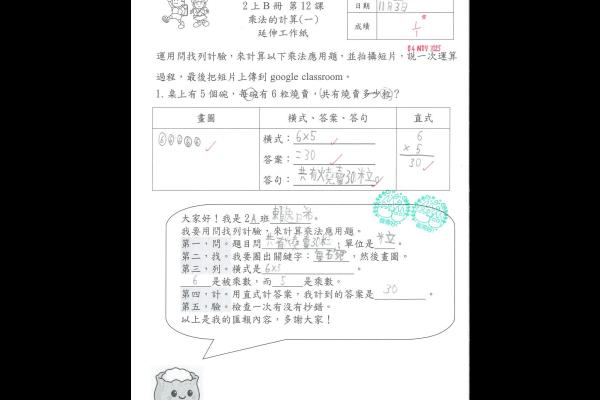 2上B冊 第12課
乘法的計算(一)
延伸工作紙
日期 11月3日
成績 1/1
04 NOV 2025
運用問找列計驗，來計算以下乘法應用題，並拍攝短片，說一次運算
過程，最後把短片上傳到 google classroom。
1. 桌上有5個碗，每碗有6粒燒賣，共有燒賣多少粒？
畫圖 橫式、答案、答句 直式
6 6 6 6 6
橫式：6×5
答案：=30
答句：共有燒賣30粒。
6
× 5
30
大家好！我是2A班
我要用問找列計驗，來計算乘法應用題。
第一，問。題目問共有燒賣30粒，單位是粒。
第二，找。我要圈出關鍵字：，然後畫圖。
第三，列。橫式是6×5。
6是被乘數，而5是乘數。
第四，計。用直式計答案，我計到的答案是30。
第五，驗。檢查一次有沒有抄錯。
以上是我的匯報內容，多謝大家！